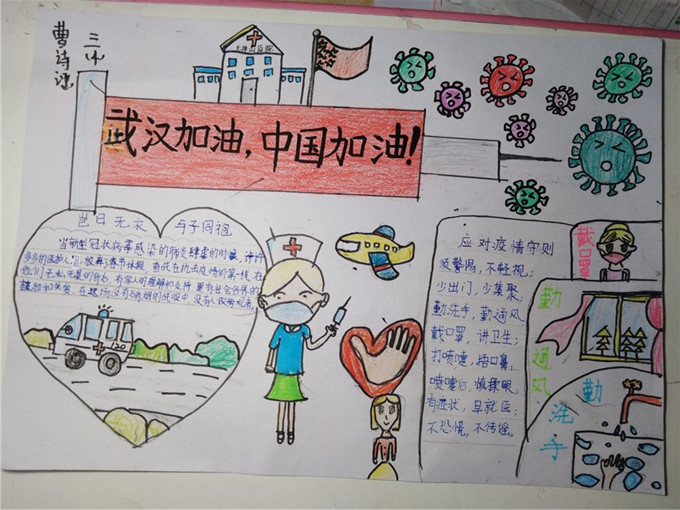 三小
曹诗
火神山医院
武汉加油,中国加油!
岂曰无衣 与子同袍
当新型冠状病毒感染的肺炎肆虐的时候,许许
多多的医护人员放弃了春节休假,奋战在抗击疫情的第一线,在
他们无私无畏的背后,有家人的理解和支持,更有社会各界的
援助和关爱,在这场没有硝烟的战役中,没有人
120
应对疫情守则
须警惕,不轻视;
少出门,少集聚;
勤洗手,勤通风
戴口罩,讲卫生;
打喷嚏,捂口鼻,
喷嚏后,慎揉眼,
有症状,早就医;
不恐慌,不传谣。
戴口罩
勤通风
勤洗手